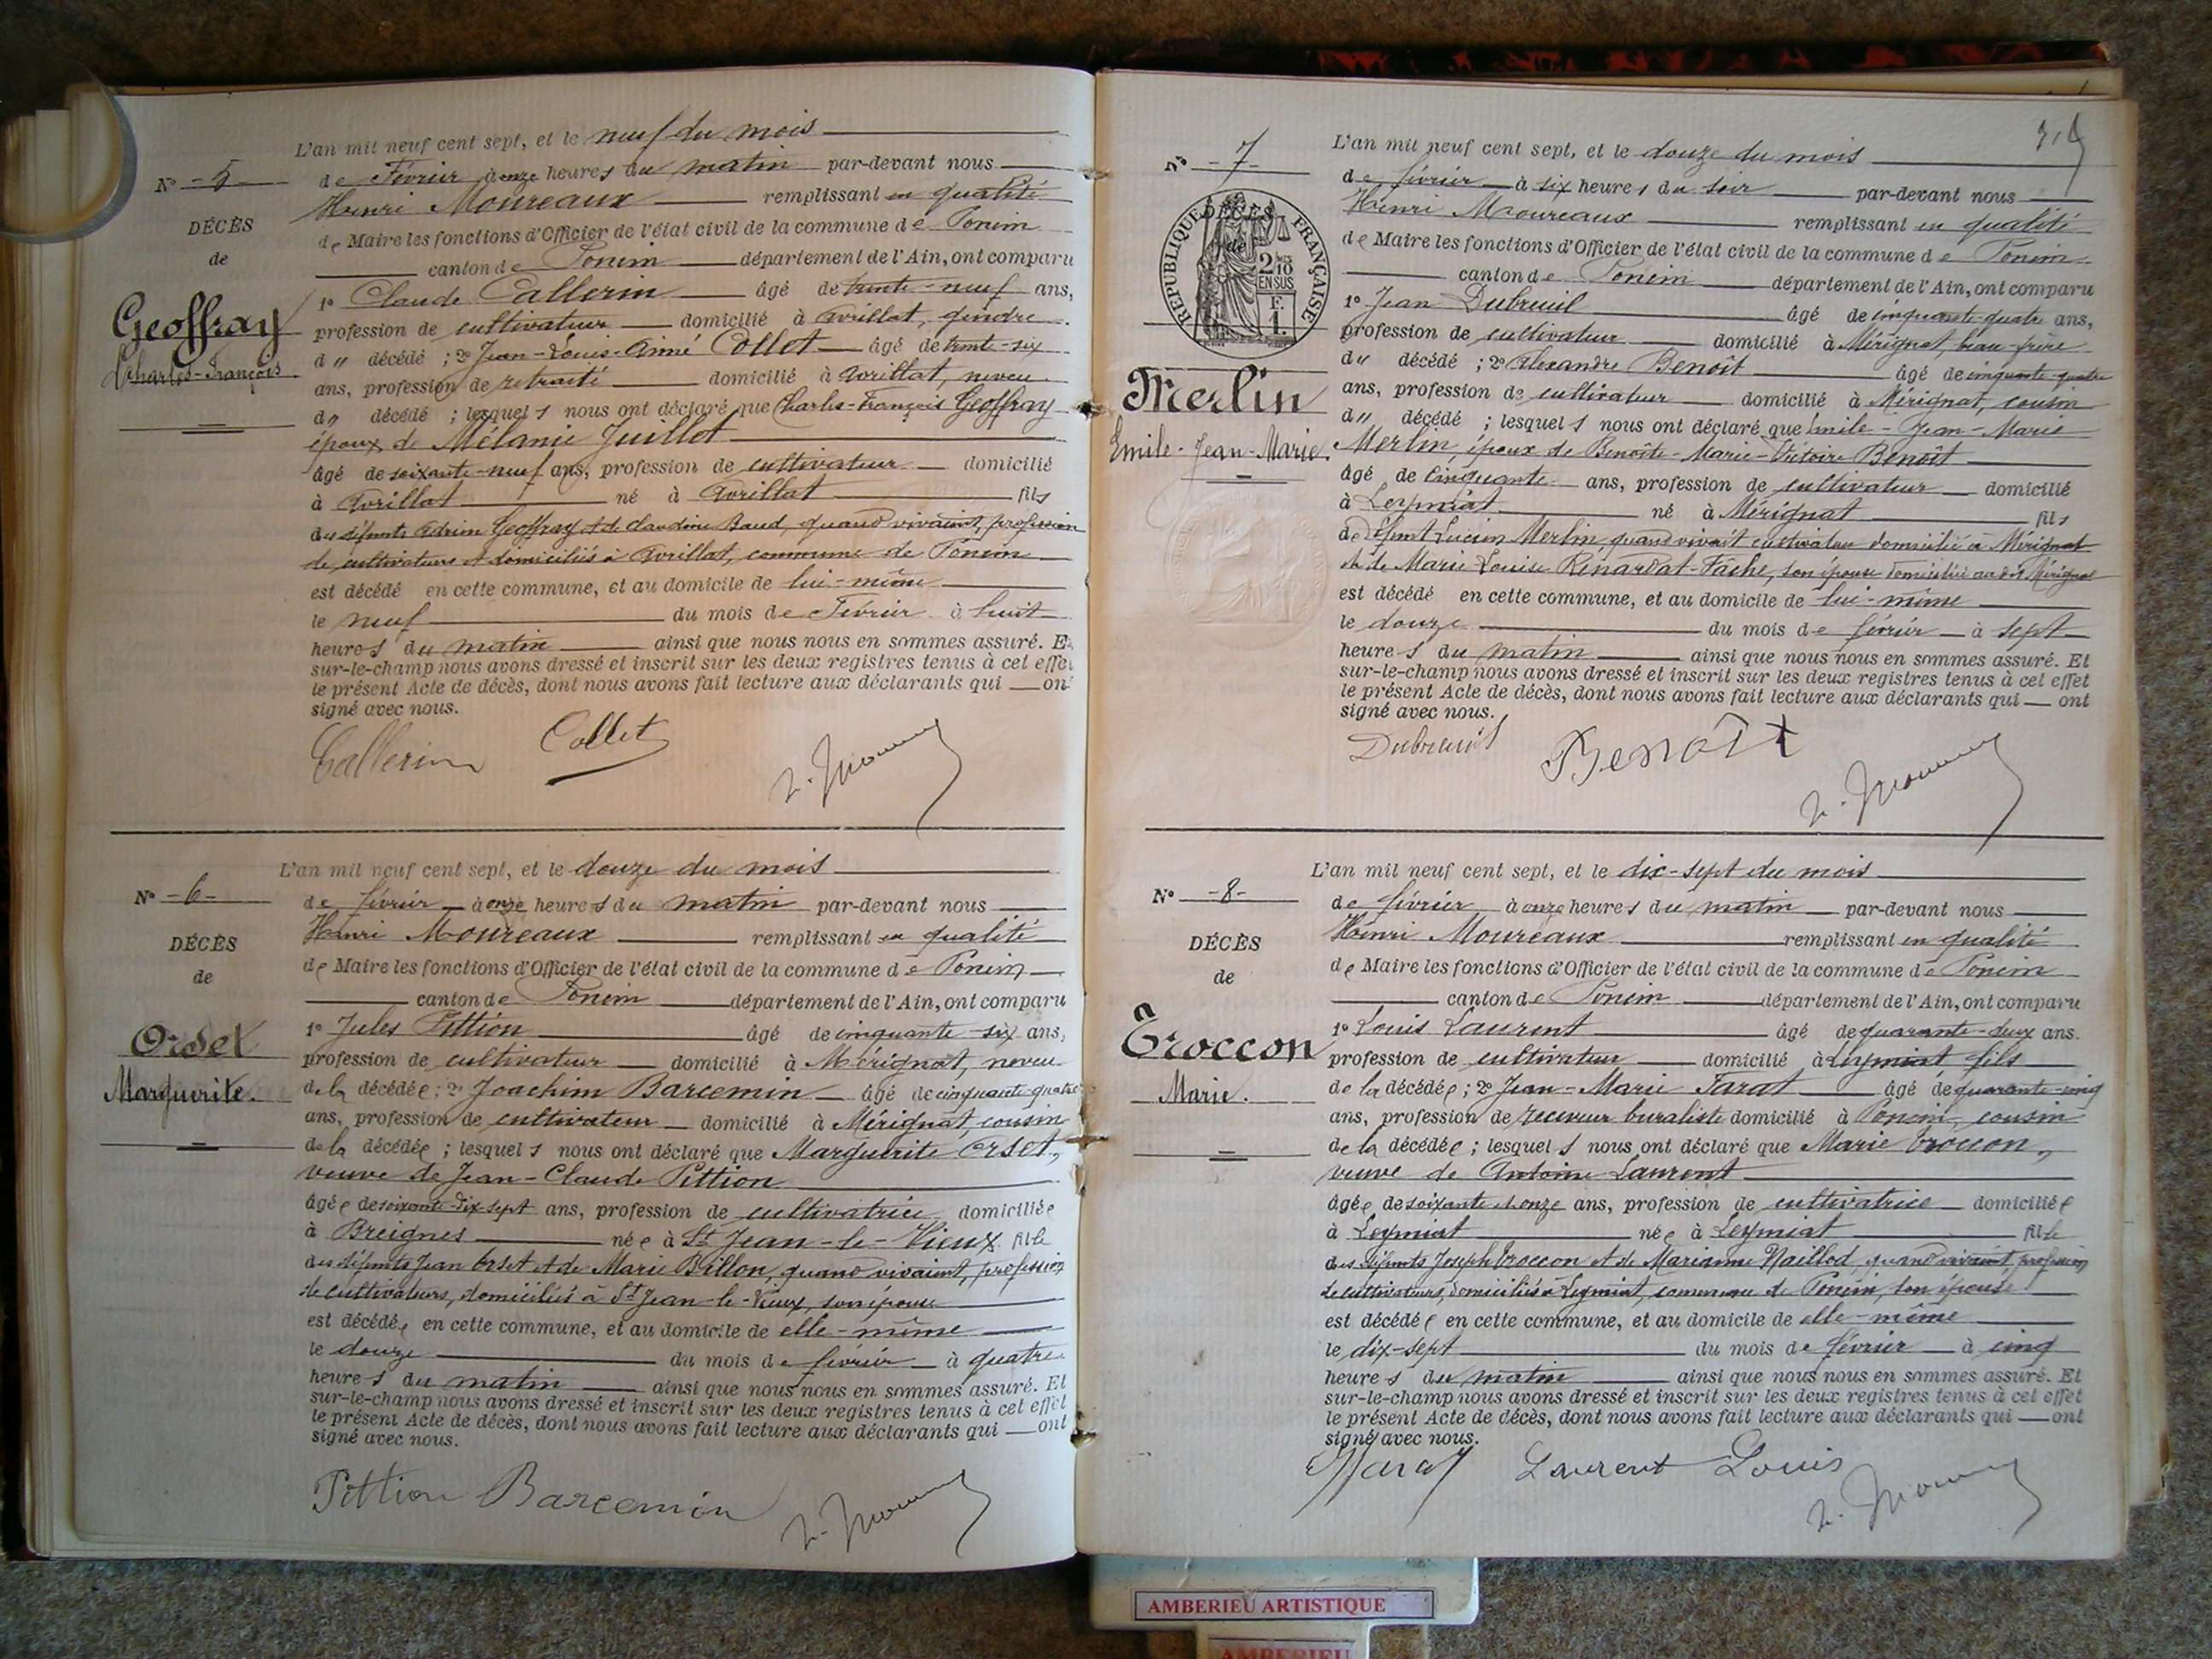 L'an mil neuf cent sept, et le neuf du mois
Nº -5- de Février à onze heures du matin par-devant nous
Henri Moureaux remplissant en qualité
DÉCÈS
de Maire les fonctions d'Officier de l'état civil de la commune de Poncin
de
canton de Poncin département de l'Ain, ont comparu
1º Claude Callerin âgé de trente-neuf ans,
Geoffray
profession de cultivateur domicilié à Avrillat, gendre
Charles-François
d u décédé ; 2º Jean-Louis-Aimé Collet âgé de trente-six
ans, profession de retraité domicilié à Avrillat, neveu
du décédé ; lesquels nous ont déclaré que Charles-François Geoffray
époux de Mélanie Juillet
âgé de soixante-neuf ans, profession de cultivateur domicilié
à Avrillat né à Avrillat fils
des défunts Adrien Geoffray et de Claudine Baud, quand vivaient, profession
de cultivateurs et domiciliés à Avrillat, commune de Poncin
est décédé en cette commune, et au domicile de lui-même
le neuf du mois de Février à huit
heures du matin ainsi que nous nous en sommes assuré. Et
sur-le-champ nous avons dressé et inscrit sur les deux registres tenus à cet effet
le présent Acte de décès, dont nous avons fait lecture aux déclarants qui ont
signé avec nous.
Callerin Collet
L'an mil neuf cent sept, et le douze du mois
Nº -6- de février à onze heures du matin par-devant nous
Henri Moureaux remplissant en qualité
DÉCÈS
de Maire les fonctions d'Officier de l'état civil de la commune de Poncin
de
canton de Poncin département de l'Ain, ont comparu
1º Jules Pittion âgé de cinquante-six ans,
Orset
profession de cultivateur domicilié à Mérignat, neveu
Marguerite.
de la décédée ; 2º Joachim Barcemin âgé de cinquante-quatre
ans, profession de cultivateur domicilié à Mérignat, cousin
de la décédée ; lesquels nous ont déclaré que Marguerite Orset,
veuve de Jean-Claude Pittion
âgée de soixante-dix-sept ans, profession de cultivatrice domiciliée
à Breignes née à St Jean-le-Vieux fille
des défunts Jean Orset et de Marie Billon, quand vivaient, profession
de cultivateurs, domiciliés à St Jean-le-Vieux, son épouse
est décédée en cette commune, et au domicile de elle-même
le douze du mois de février à quatre
heures du matin ainsi que nous nous en sommes assuré. Et
sur-le-champ nous avons dressé et inscrit sur les deux registres tenus à cet effet
le présent Acte de décès, dont nous avons fait lecture aux déclarants qui ont
signé avec nous.
Pittion Barcemin
L'an mil neuf cent sept, et le douze du mois
Nº -7- de février à six heures du soir par-devant nous
Henri Moureaux remplissant en qualité
DÉCÈS
de
RÉPUBLIQUE FRANÇAISE
2/10 EN SUS
F. 1.
de Maire les fonctions d'Officier de l'état civil de la commune de Poncin
canton de Poncin département de l'Ain, ont comparu
1º Jean Dubreuil âgé de cinquante-quatre ans,
profession de cultivateur domicilié à Mérignat, beau-frère
du décédé ; 2º Alexandre Benoît âgé de cinquante-quatre
Merlin
ans, profession de cultivateur domicilié à Mérignat, cousin
du décédé ; lesquels nous ont déclaré que Emile-Jean-Marie
Emile-Jean-Marie.
Merlin, époux de Benoîte-Marie-Victoire Benoît
âgé de cinquante ans, profession de cultivateur domicilié
à Leymiat né à Mérignat fils
de défunt Lucien Merlin, quand vivait cultivateur domicilié à Mérignat
et de Marie-Louise Renardat-Fâche, son épouse domiciliée au dit Mérignat
est décédé en cette commune, et au domicile de lui-même
le douze du mois de février à sept
heures du matin ainsi que nous nous en sommes assuré. Et
sur-le-champ nous avons dressé et inscrit sur les deux registres tenus à cet effet
le présent Acte de décès, dont nous avons fait lecture aux déclarants qui ont
signé avec nous.
Dubreuil Benoît
L'an mil neuf cent sept, et le dix-sept du mois
Nº -8- de février à onze heures du matin par-devant nous
Henri Moureaux remplissant en qualité
DÉCÈS
de Maire les fonctions d'Officier de l'état civil de la commune de Poncin
de
canton de Poncin département de l'Ain, ont comparu
1º Louis Laurent âgé de quarante-deux ans.
Troccon
profession de cultivateur domicilié à Leymiat fils
de la décédée ; 2º Jean-Marie Farat âgé de quarante-cinq
Marie.
ans, profession de receveur buraliste domicilié à Poncin, cousin
de la décédée ; lesquels nous ont déclaré que Marie Troccon,
veuve de Antoine Laurent
âgée de soixante et onze ans, profession de cultivatrice domiciliée
à Leymiat née à Leymiat fille
des défunts Joseph Troccon et de Marianne Naillod, quand vivaient profession
de cultivateurs, domiciliés à Leymiat, commune de Poncin, son épouse
est décédée en cette commune, et au domicile de elle-même
le dix-sept du mois de février à cinq
heures du matin ainsi que nous nous en sommes assuré. Et
sur-le-champ nous avons dressé et inscrit sur les deux registres tenus à cet effet
le présent Acte de décès, dont nous avons fait lecture aux déclarants qui ont
signé avec nous.
Farat Laurent Louis
AMBERIEU ARTISTIQUE
AMBERIEU